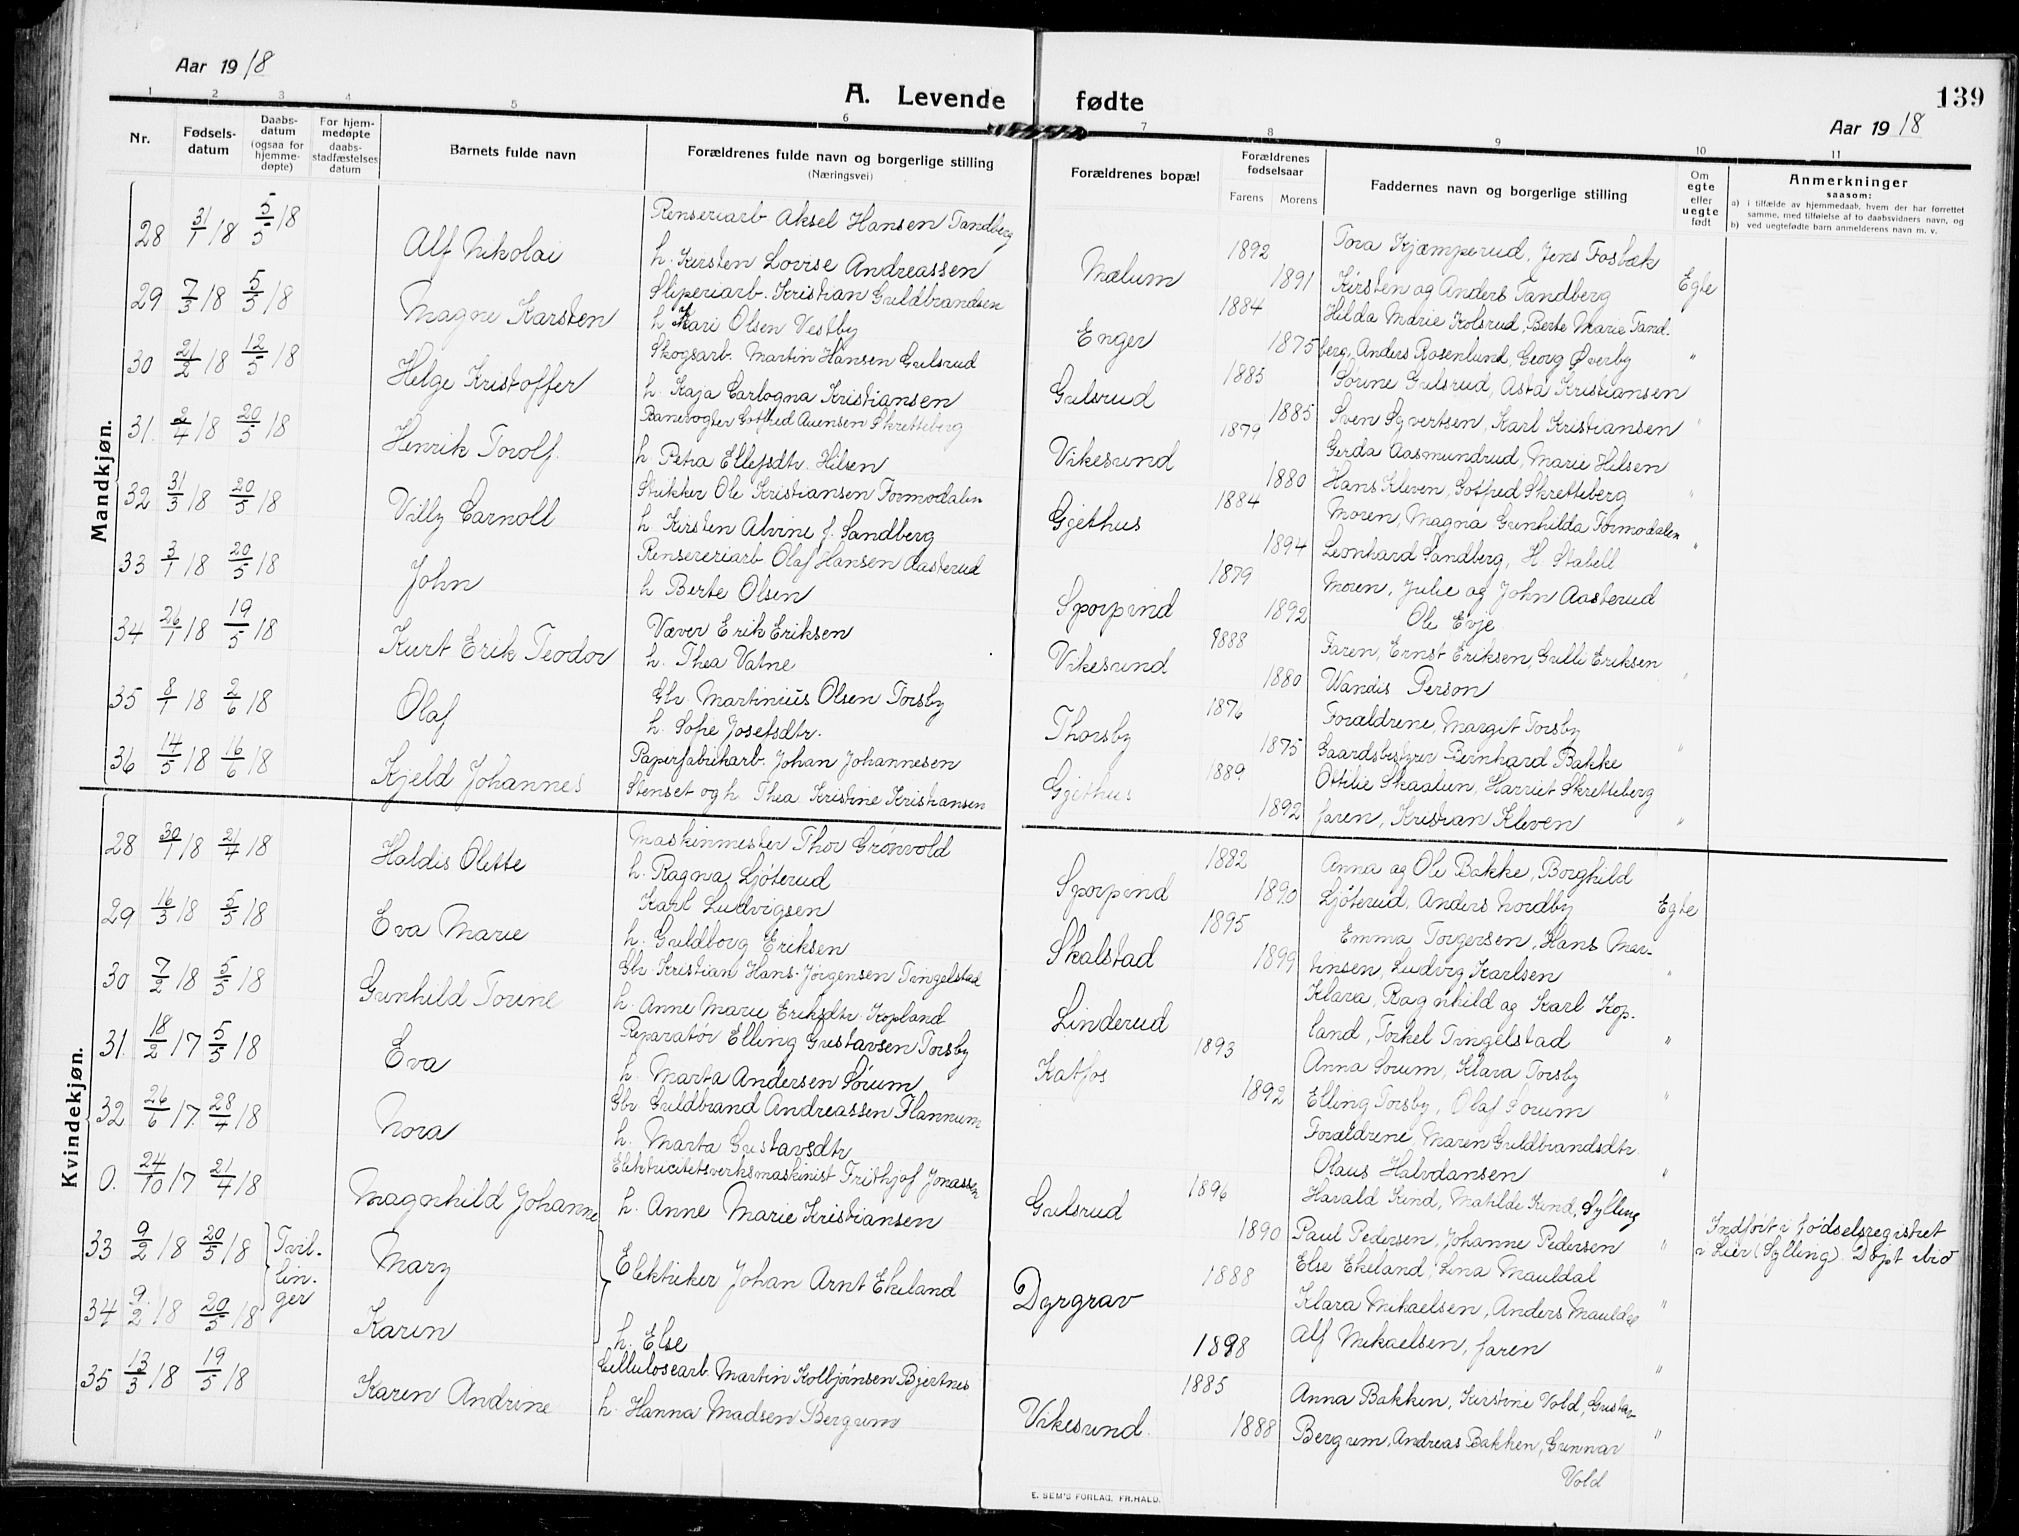 Aar 1918
A. Levende fødte
139
Aar 1918
1 2 3 4 5 6 7 8 9 10 11
Nr.
Fødsels-
datum
Daabs-
datum
(ogsaa for
hjemme-
døpte)
For hjem-
medøpte
daabs-
stadfæstelses
datum
Barnets fulde navn
Forældrenes fulde navn og borgerlige stilling
(Næringsvei)
Forældrenes bopæl
Forældrenes
fødselsaar
Farens Morens
Faddernes navn og borgerlige stilling
Om
egte
eller
uegte
født
Anmerkninger
saasom:
a) i tilfælde av hjemmedaab, hvem der har forrettet
samme, med tilføielse af to daabsvidners navn, og
b) ved uegtefødte barn anmelderens navn m. v.
Mandkjøn.
28 31/1 18 5/5 18 Alf Nikolai
Renseriarb Aksel Hansen Tandberg
h. Kirsten Lovise Andreassen
Mælum 1892 1891
Tora Kjæmperud, Jens Fosbæk
Kirsten og Anders Tandberg
Egte
29 7/3 18 5/5 18 Magne Karsten
Sliperiarb. Kristian Guldbrandsen
h. Mari Olsen Vestby
Enger 1884 1875
Hilda Marie Kolsrud, Berte Marie Tand-
berg, Anders Rosenlund, Georg Øverby "
30 21/2 18 12/5 18 Helge Kristoffer
Skogsarb. Martin Hansen Gulsrud
h. Kaja Carlogna Kristiansen
Gulsrud 1885 1885
Sørine Gulsrud, Asta Kristiansen
Sven Syvertsen, Karl Kristiansen "
31. 2/4 18 20/5 18 Henrik Torolf.
Banevogter Gotfred Auensen Skretteberg
h. Petra Ellefsdtr. Hilsen
Vikesund 1879 1880
Gerda Aasmundrud, Marie Hilsen
Hans Kleven, Gotfred Skretteberg "
32 31/3 18 20/5 18 Villy Carnoll
Strikker Ole Kristiansen Formodalen
h Kirsten Alvine f. Sandberg
Gjethus 1884 1894
Moren, Magna Gunhilda Formodalen
Leonhard Sandberg, H Stabell "
33 3/1 18 20/5 18 John
Rensereriarb Olaf Hansen Aasterud
h Berte Olsen
Sporpind 1879 1892
Moren, Julie og John Aasterud
Ole Evje
34 26/1 18 19/5 18 Kurt Erik Teodor
Væver Erik Eriksen
h. Thea Vatne
Vikesund 1888 1880
Faren, Ernst Eriksen, Gulli Eriksen
Wandis Person "
35 8/1 18 2/6 18 Olaf
Gbr. Martinius Olsen Torsby
h. Sofie Josefsdtr.
Thorsby 1876 1875
Forældrene, Margit Torsby
Gaardsbestyrer Bernhard Bakke "
36 14/5 18 16/6 18 Kjeld Johannes
Papirfabrikarb. Johan Johannesen
Stenset og h. Thea Kristine Kristiansen
Gjethus 1889 1892
Ottilie Skaalien, Harriet Skretteberg
faren, Kristian Kleven "
Kvindekjøn.
28 30/1 18 21/4 18 Haldis Olette
Maskinmester Thor Grønvold
h. Ragna Ljøterud
Sporpind 1882 1890
Anna og Ole Bakke, Borghild
Ljøterud, Anders Nordby Egte
29 16/3 18 5/5 18 Eva Marie
Karl Ludvigsen
h. Guldborg Eriksen
Skalstad 1895 1899
Emma Torgersen, Hans Mar-
tinsen, Ludvig Karlsen "
30 7/2 18 5/5 18 Gunhild Torine
Gbr. Kristian Hans-Jørgensen Tingelstad
h. Anne Marie Eriksdtr. Kopland
Linderud
Klara, Ragnhild og Karl Kop-
land, Torkel Tingelstad "
31. 18/2 17 5/5 18 Eva
Reparatør Elling Gustavsen Torsby
h. Marta Andersen Sørum
Katfos 1893 1892
Anna Sorum, Klara Torsby
Elling Torsby, Olaf Sorum "
32 26/6 17. 28/4 18 Nora
Gbr Guldbrand Andreassen Flannum
h. Marta Gustavsdtr
Forældrene, Maren Guldbrandsdtr.
Olaus Halvdansen "
0. 24/10 17 21/4 18 Magnhild Johanne
Elektricitetsverksmaskinist Frithjof Jonassen
h. Anne Marie Kristiansen
Gulsrud 1896 1890
Harald Kind, Matilde Kind, Sylling
Paul Pedersen, Johanne Pedersen "
Indført i fødselsregistret
i Lier (Sylling). Døpt ibid
33 9/2 18 20/5 18 Tvil-
lin-
ger
Mary
Elektriker Johan Arnt Ekeland
Dyrgrav 1888
Else Ekeland, Lina Mauldal
Klara Mikaelsen, Anders Mauldal "
34 9/2 18 20/5 18 Karin
h. Else
1898
Alf Mikaelsen, faren "
35 13/3 18 19/5 18 Karen Andrine
Cellulosearb. Martin Kolbjørnsen Bjertnes
h. Hanna Madsen Bergum
Vikesund. 1885 1888
Anna Bakken, Kirstine Vold, Gustav
Bergum, Andreas Bakken, Gunnar
Vold "
E. SEM'S FORLAG. FR.HALD.